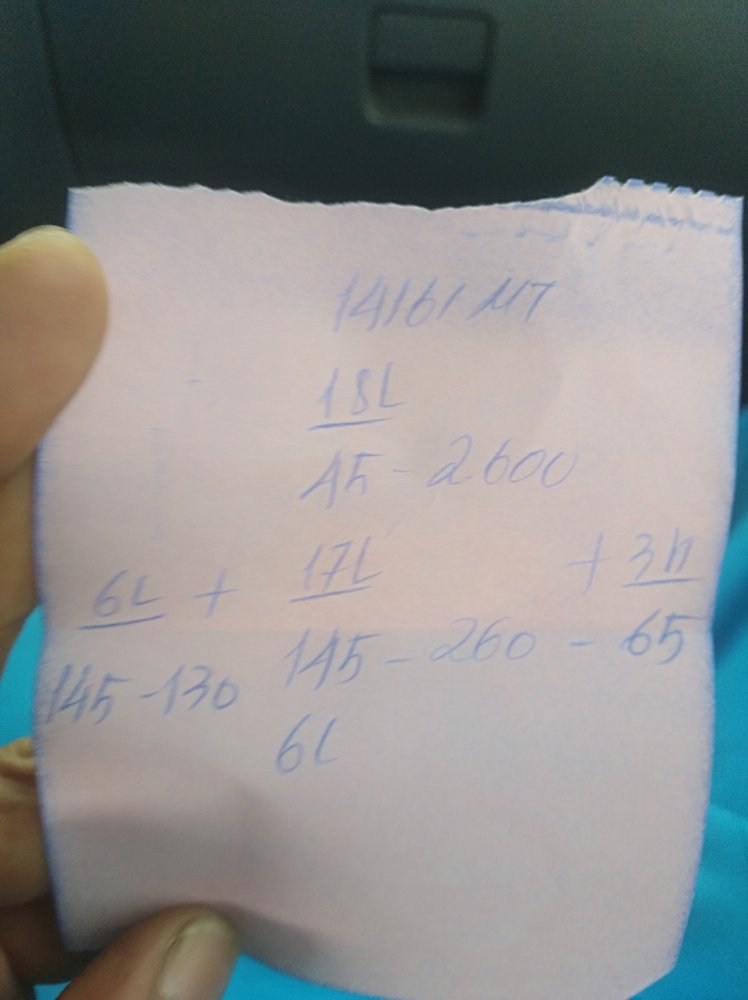 14161 MT
18L
45 - 2600
6L + 17L + 3h
145 - 130 145 - 260 - 65
6L